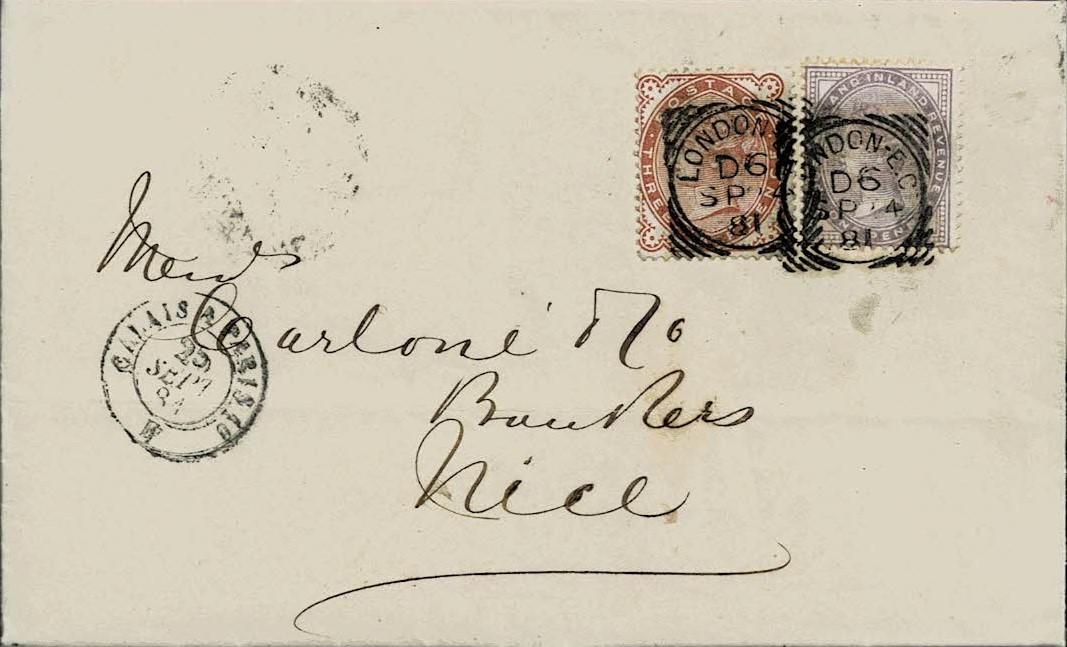 POSTAGE
THREE
LONDON-E.C
D6
SP 4
81
AND INLAND REVENUE
LONDON-E.C
D6
SP 24
81
Messrs
Carloné & Co
Bankers
Nice
CALAIS A PARIS 1O
25
SEPT
81